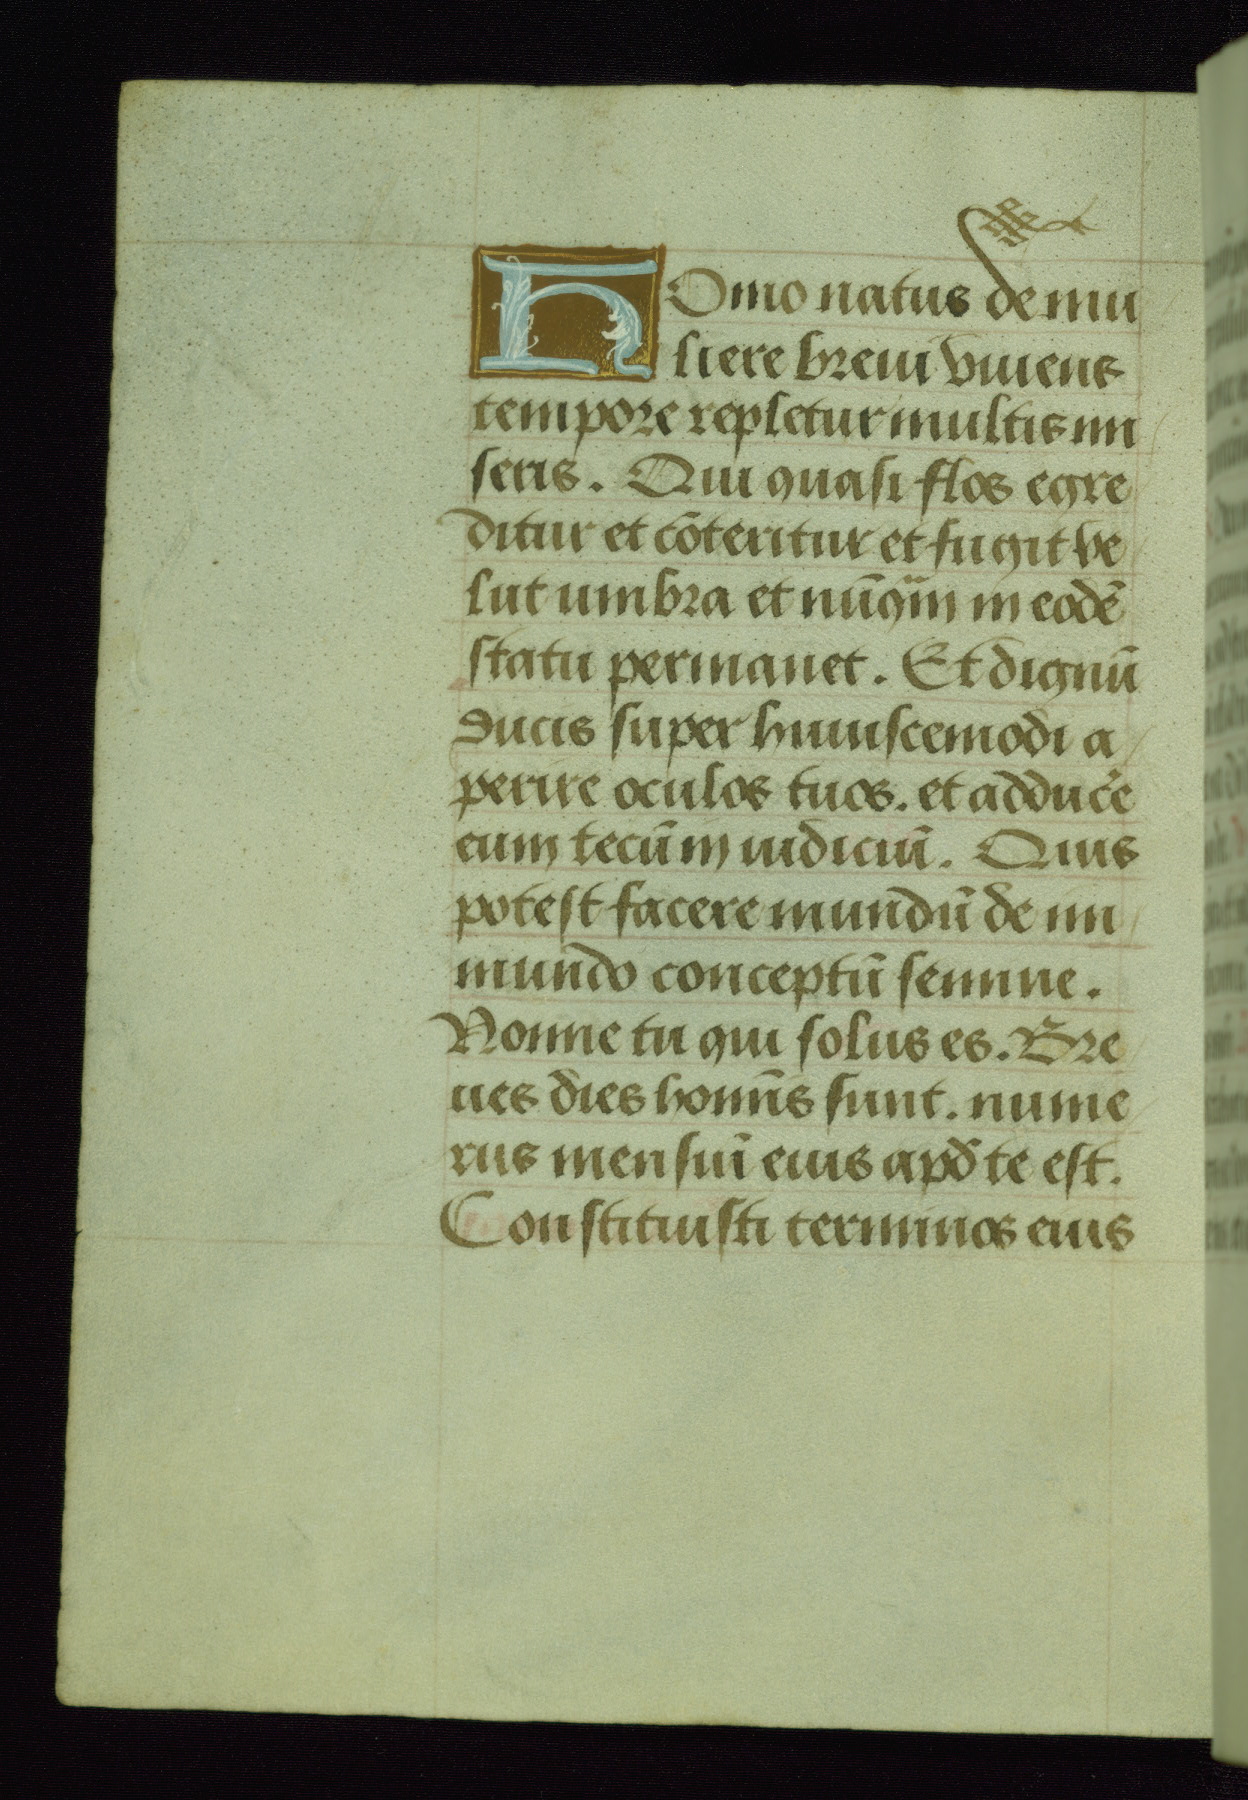 HOmo natus de mu
liere breui viuens
tempore repletur multis mi
seriis. Qui quasi flos egre
ditur et cōteritur et fugit ve
lut umbra et nūq̃m in eodē
statu permanet. Et dignū
ducis super huiuscemodi a
perire oculos tuos. et adducĕ
eum tecū in iudiciū. Quis
potest facere mundū de im
mundo conceptū semine.
Nonne tu qui solus es. Bre
ues dies homīs sunt. nume
rus mensiū eius apd̄ te est.
Constituisti terminos eius